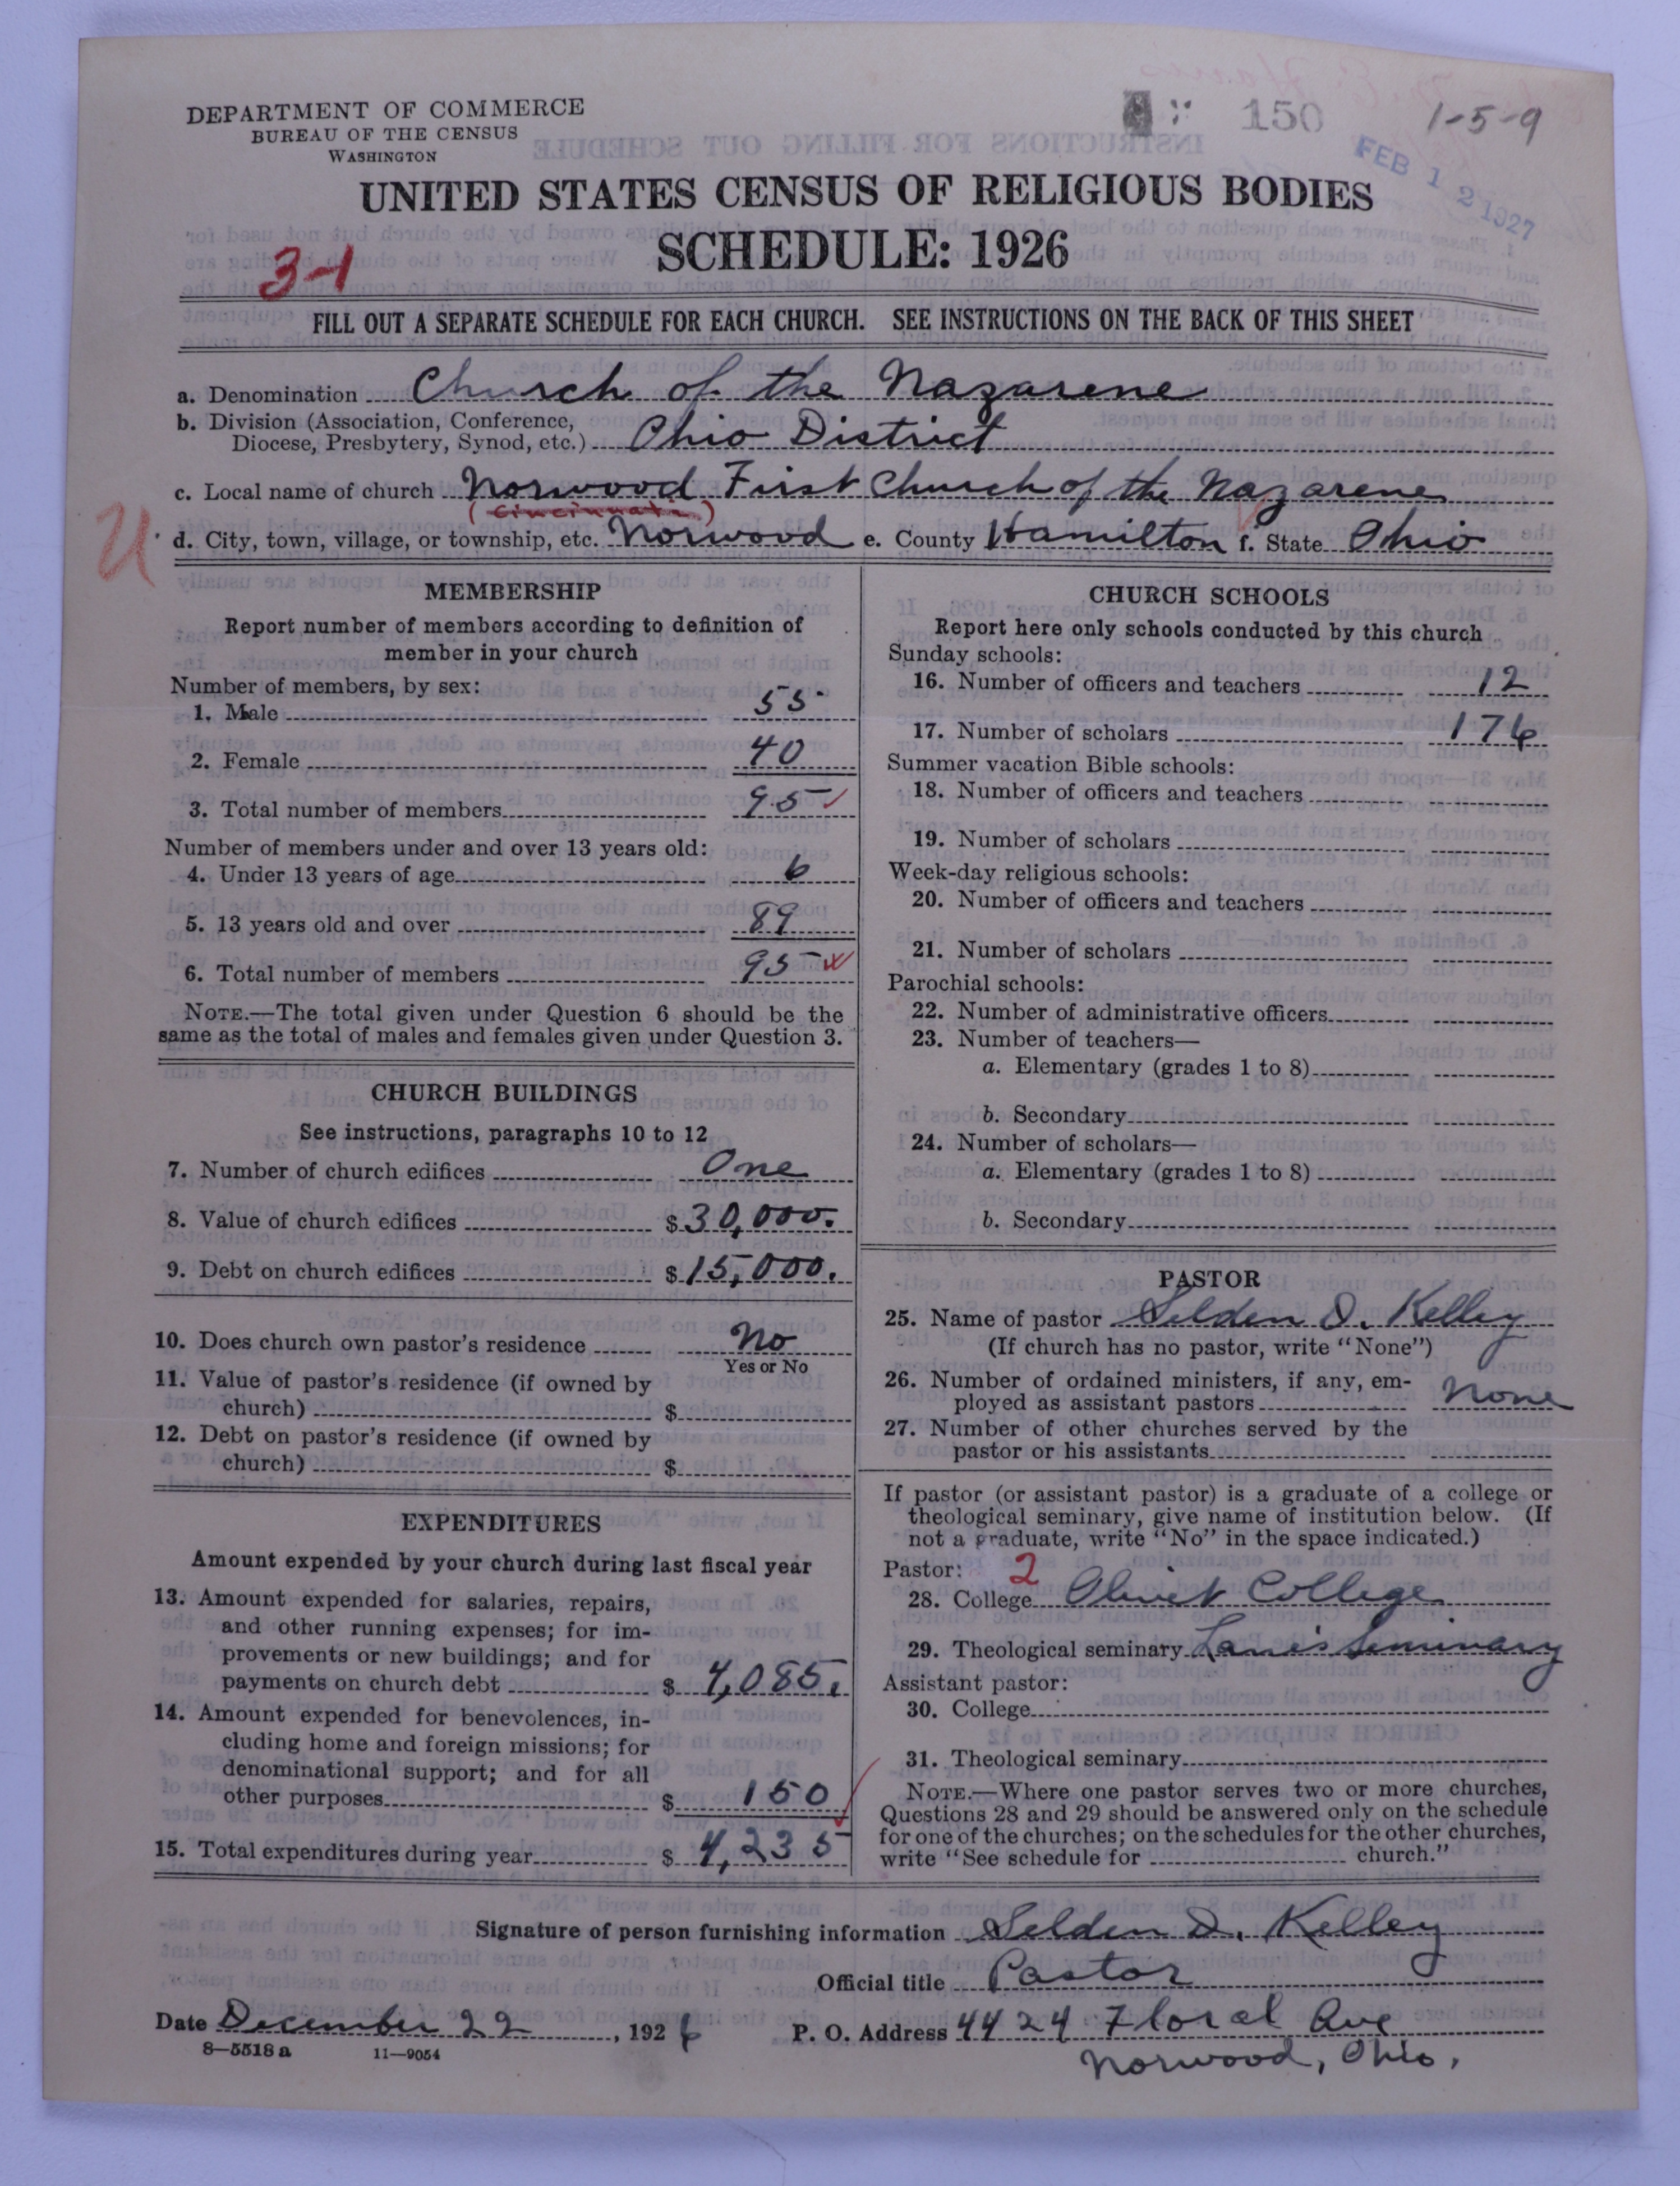 DEPARTMENT OF COMMERCE
BUREAU OF THE CENSUS
WASHINGTON
150
1-5-9
FEB 12 1927
UNITED STATES CENSUS OF RELIGIOUS BODIES
SCHEDULE: 1926
3-1
FILL OUT A SEPARATE SCHEDULE FOR EACH CHURCH. SEE INSTRUCTIONS ON THE BACK OF THIS SHEET
a. Denomination Church of the Nazarene
b. Division (Association, Conference,
Diocese, Presbytery, Synod, etc.) Ohio District
c. Local name of church Norwood First Church of the Nazarene
(Cincinnati)
U
d. City, town, village, or township, etc. Norwood e. County Hamilton f. State Ohio
MEMBERSHIP
Report number of members according to definition of
member in your church
Number of members, by sex:
1. Male 55
2. Female 40
3. Total number of members 95
Number of members under and over 13 years old:
4. Under 13 years of age 6
5. 13 years old and over 89
6. Total number of members 95
NOTE.—The total given under Question 6 should be the
same as the total of males and females given under Question 3.
CHURCH BUILDINGS
See instructions, paragraphs 10 to 12
7. Number of church edifices One
8. Value of church edifices $30,000.
9. Debt on church edifices $15,000.
10. Does church own pastor's residence No
Yes or No
11. Value of pastor's residence (if owned by
church) $
12. Debt on pastor's residence (if owned by
church) $
EXPENDITURES
Amount expended by your church during last fiscal year
13. Amount expended for salaries, repairs,
and other running expenses; for im-
provements or new buildings; and for
payments on church debt $ 4,085.
14. Amount expended for benevolences, in-
cluding home and foreign missions; for
denominational support; and for all
other purposes $ 150
15. Total expenditures during year $ 4,235
CHURCH SCHOOLS
Report here only schools conducted by this church
Sunday schools:
16. Number of officers and teachers 12
17. Number of scholars 176
Summer vacation Bible schools:
18. Number of officers and teachers
19. Number of scholars
Week-day religious schools:
20. Number of officers and teachers
21. Number of scholars
Parochial schools:
22. Number of administrative officers
23. Number of teachers—
a. Elementary (grades 1 to 8)
b. Secondary
24. Number of scholars—
a. Elementary (grades 1 to 8)
b. Secondary
PASTOR
25. Name of pastor Selden D. Kelley
(If church has no pastor, write "None")
26. Number of ordained ministers, if any, em-
ployed as assistant pastors None
27. Number of other churches served by the
pastor or his assistants
If pastor (or assistant pastor) is a graduate of a college or
theological seminary, give name of institution below. (If
not a graduate, write "No" in the space indicated.)
Pastor: 2
28. College Olivet College
29. Theological seminary Lane's Seminary
Assistant pastor:
30. College
31. Theological seminary
NOTE.—Where one pastor serves two or more churches,
Questions 28 and 29 should be answered only on the schedule
for one of the churches; on the schedules for the other churches,
write "See schedule for church."
Signature of person furnishing information Selden D. Kelley
Official title Pastor
Date December 22, 1926 P. O. Address 4424 Floral Ave
Norwood, Ohio.
8—5518a 11—9054